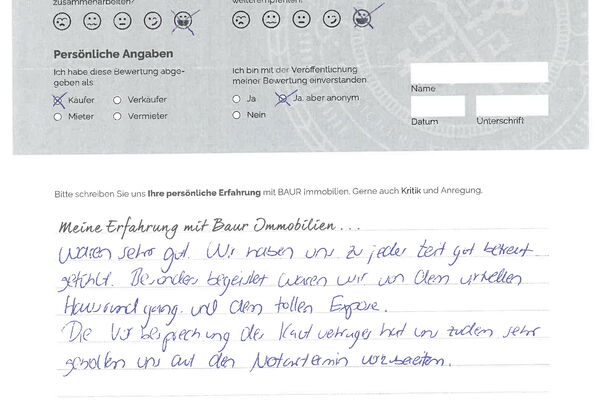 zusammenarbeiten?
weiterempfehlen?
Persönliche Angaben
Ich habe diese Bewertung abge-
geben als
Käufer Verkäufer
Mieter Vermieter
Ich bin mit der Veröffentlichung
meiner Bewertung einverstanden.
Ja Ja, aber anonym
Nein
Name
Datum Unterschrift
Bitte schreiben Sie uns Ihre persönliche Erfahrung mit BAUR immobilien. Gerne auch Kritik und Anregung.
Meine Erfahrung mit Baur Immobilien...
Waren sehr gut. Wir haben uns zu jeder Zeit gut betreut
gefühlt. Besonders begeistert waren wir von dem virtuellen
Hausrundgang und dem tollen Expose.
Die Vorbesprechung des Kaufvertrages hat uns zudem sehr
geholfen uns auf den Notartermin vorzubereiten.